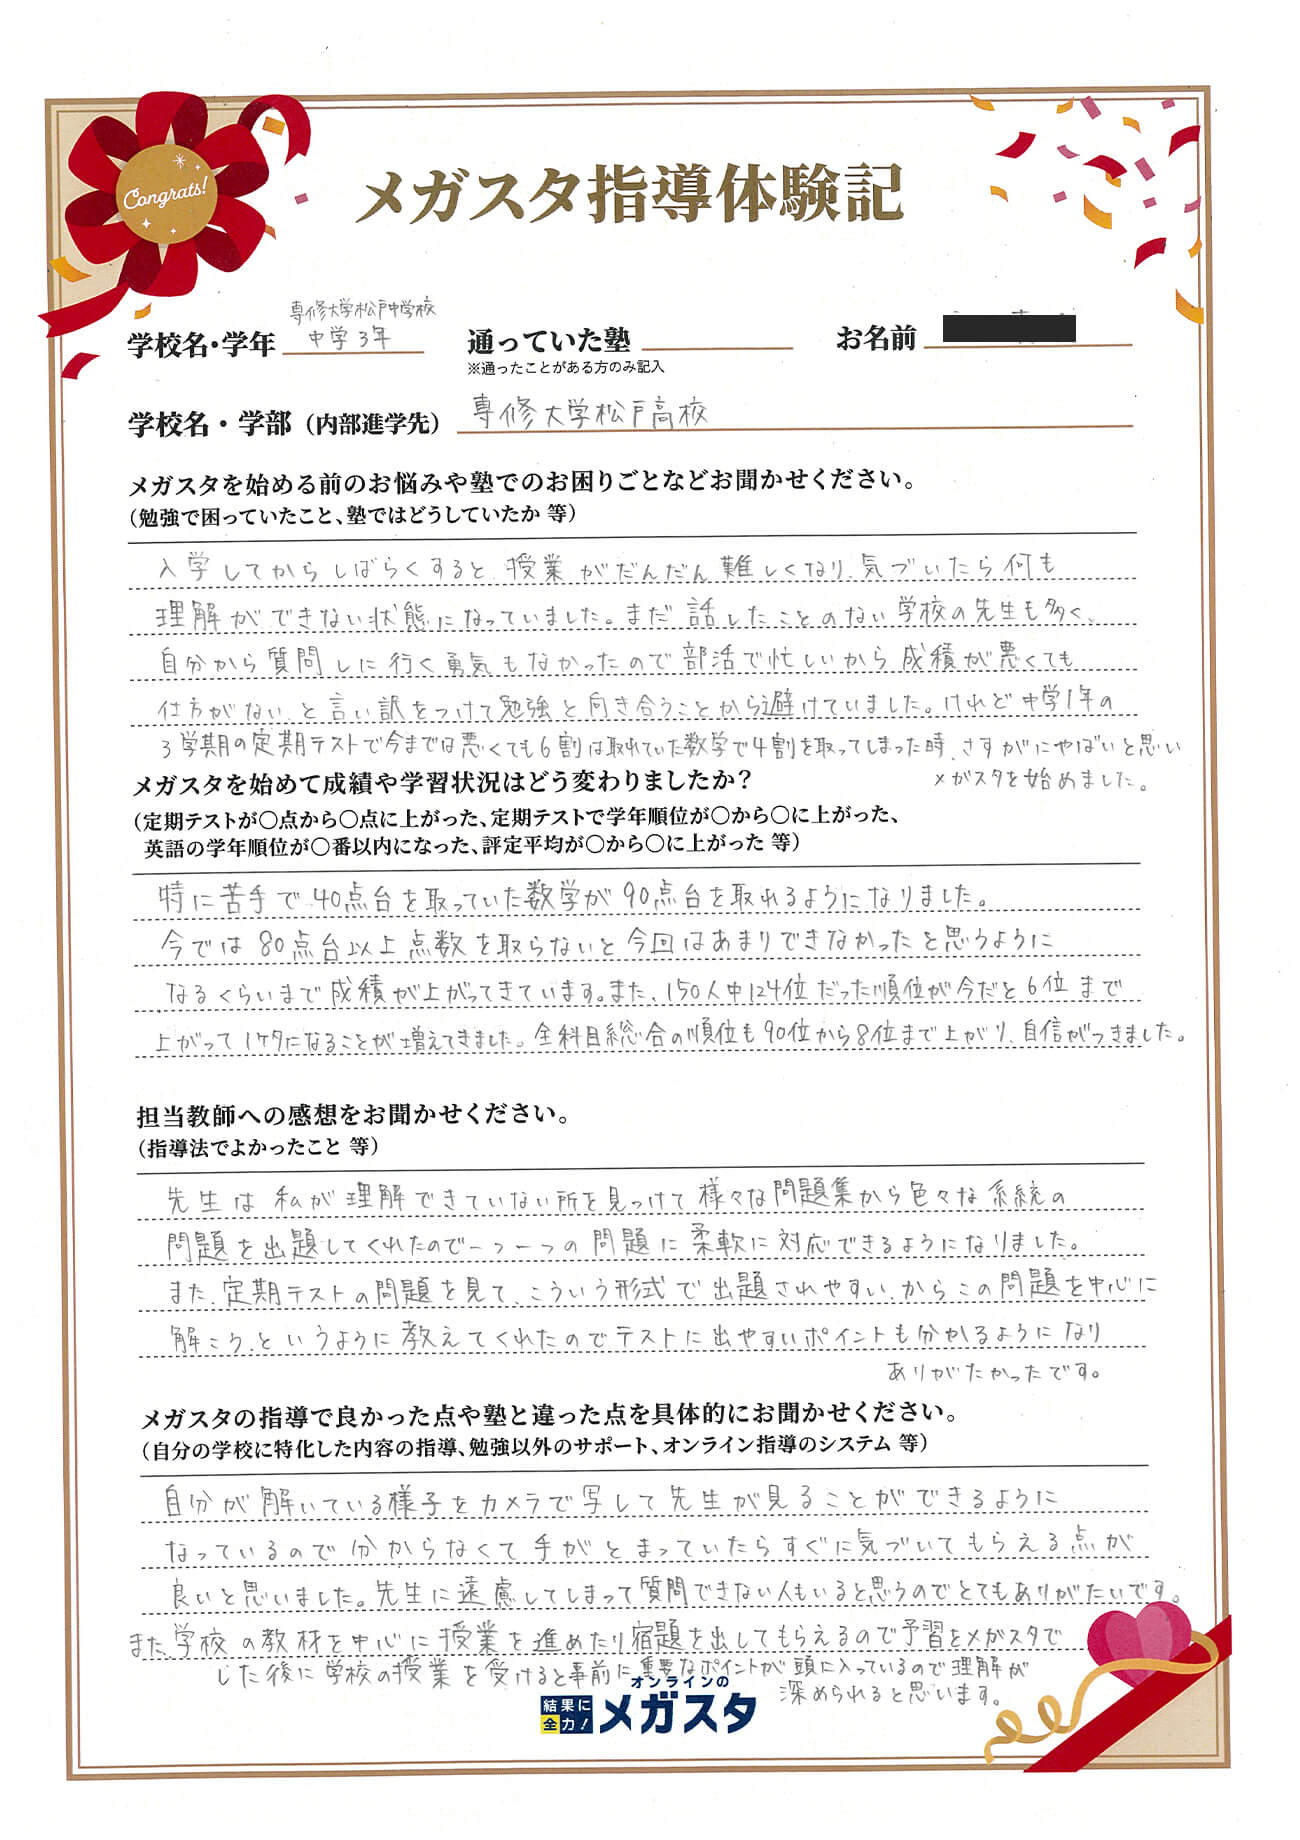 Congrats!
メガスタ指導体験記
専修大学松戸中学校
学校名・学年 中学3年 通っていた塾 お名前
※通ったことがある方のみ記入
学校名・学部（内部進学先） 専修大学松戸高校
メガスタを始める前のお悩みや塾でのお困りごとなどお聞かせください。
（勉強で困っていたこと、塾ではどうしていたか 等）
入学してからしばらくすると、授業がだんだん難しくなり、気づいたら何も
理解ができない状態になっていました。まだ話したことのない学校の先生も多く、
自分から質問しに行く勇気もなかったので部活で忙しいから成績が悪くても
仕方がない、と言い訳をつけて勉強と向き合うことから避けていました。けれど中学1年の
3学期の定期テストで今までは悪くても6割は取れていた数学で4割を取ってしまった時、さすがにやばいと思い
メガスタを始めました。
メガスタを始めて成績や学習状況はどう変わりましたか？
（定期テストが〇点から〇点に上がった、定期テストで学年順位が〇から〇に上がった、
英語の学年順位が〇番以内になった、評定平均が〇から〇に上がった 等）
特に苦手で40点台を取っていた数学が90点台を取れるようになりました。
今では80点台以上点数を取らないと今回はあまりできなかったと思うように
なるくらいまで成績が上がってきています。また、150人中124位だった順位が今だと6位まで
上がって1ケタになることが増えてきました。全科目総合の順位も90位から8位まで上がり、自信がつきました。
担当教師への感想をお聞かせください。
（指導法でよかったこと 等）
先生は私が理解できていない所を見つけて様々な問題集から色々な系統の
問題を出題してくれたので一つ一つの問題に柔軟に対応できるようになりました。
また、定期テストの問題を見て、こういう形式で出題されやすい、からこの問題を中心に
解こう、というように教えてくれたのでテストに出やすいポイントも分かるようになり
ありがたかったです。
メガスタの指導で良かった点や塾と違った点を具体的にお聞かせください。
（自分の学校に特化した内容の指導、勉強以外のサポート、オンライン指導のシステム 等）
自分が解いている様子をカメラで写して先生が見ることができるように
なっているので分からなくて手がとまっていたらすぐに気づいてもらえる点が
良いと思いました。先生に遠慮してしまって質問できない人もいると思うのでとてもありがたいです。
また、学校の教材を中心に授業を進めたり宿題を出してもらえるので予習をメガスタで
した後に学校の授業を受けると事前に重要なポイントが頭に入っているので理解が
深められると思います。
オンラインの
結果に全力！ メガスタ